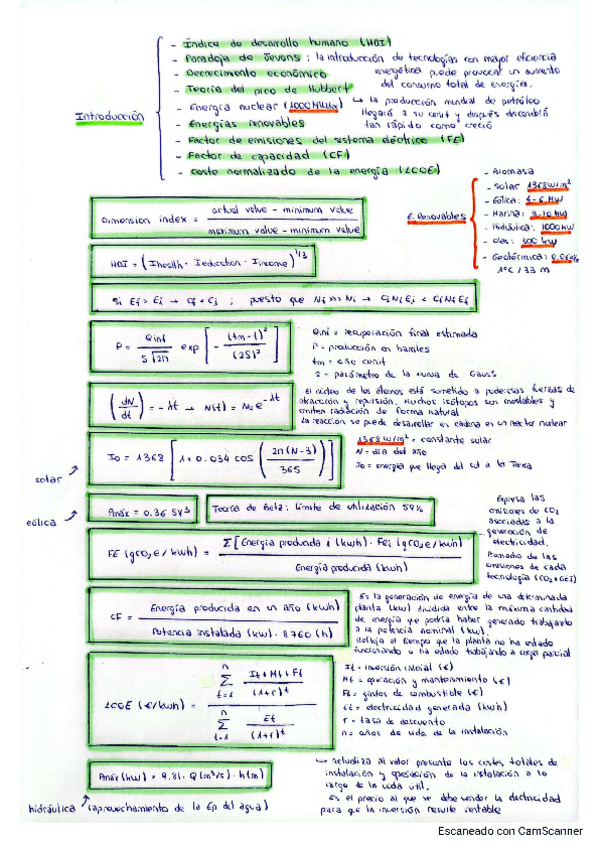 Introducción
- Índice de desarrollo humano (HDI)
- Paradoja de Jevons: la introducción de tecnologías con mayor eficiencia
energética puede provocar un aumento
del consumo total de energía.
- Decrecimiento económico
- Teoría del pico de Hubbert
↳ la producción mundial de petróleo
llegará a su cenit y después descenderá
tan rápido como creció
- Energía nuclear (1000 MW)
- Energías renovables
- Factor de emisiones del sistema eléctrico (FE)
- Factor de capacidad (CF)
- Coste normalizado de la energía (LCOE)
E. Renovables
- Biomasa
- Solar 1368 W/m²
- Eólica: 4-6 MW
- Marina: 3-10 kW
- Hidráulica: 1000 MW
- Olas: 300 kW
- Geotérmica:
1°C / 33 m
Dimension index = (actual value - minimum value) / (maximum value - minimum value)
HDI = (Ihealth · Ieducation · Income)^1/3
Si Ej > Ei → Cj < Ci ; puesto que Nj >> Ni → CiNiEi < CjNjEj
P = Qinf / (S √2π) exp [ - (tm - t)² / (2S)² ]
Qinf = recuperación final estimada
P = producción en barriles
tm = año cenit
S = parámetro de la curva de Gauss
(dN/dt) = -λt → N(t) = N₀ e^-λt
El núcleo de los átomos está sometido a poderosas fuerzas de
atracción y repulsión. Muchos isótopos son inestables y
emiten radiación de forma natural
La reacción se puede desarrollar en cadena en un reactor nuclear
solar
I₀ = 1368 [ 1 + 0.034 cos ( 2π(N-3) / 365 ) ]
1368 W/m² = constante solar
N = día del año
I₀ = energía que llega del sol a la Tierra
eólica
Pmáx = 0.36 SV³
Teoría de Betz: límite de utilización 59%
FE (gCO₂e / kWh) = Σ [Energía producida i (kWh) · FEi (gCO₂e / kWh)] / Energía producida (kWh)
Expresa las
emisiones de CO₂
asociadas a la
generación de
electricidad.
Promedio de las
emisiones de cada
tecnología (CO₂ + GEI)
CF = Energía producida en un año (kWh) / Potencia instalada (kW) · 8760 (h)
Es la generación de energía de una determinada
planta (kW) dividida entre la máxima cantidad
de energía que podría haber generado trabajando
a la potencia nominal (kW).
Refleja el tiempo que la planta no ha estado
funcionando o ha estado trabajando a carga parcial
LCOE (€/kWh) = Σ (n, t=1) (It + Mt + Ft) / (1+r)^t / Σ (n, t=1) Et / (1+r)^t
It = inversión inicial (€)
Mt = operación y mantenimiento (€)
Ft = gastos de combustible (€)
Et = electricidad generada (kWh)
r = tasa de descuento
n = años de vida de la instalación
Pmáx (kW) = 9.81 · Q (m³/s) · h (m)
→ Actualiza al valor presente los costes totales de
instalación y operación de la instalación a lo
largo de la vida útil.
Es el precio al que se debe vender la electricidad
para que la inversión resulte rentable
hidráulica (aprovechamiento de la Ep del agua)
Escaneado con CamScanner